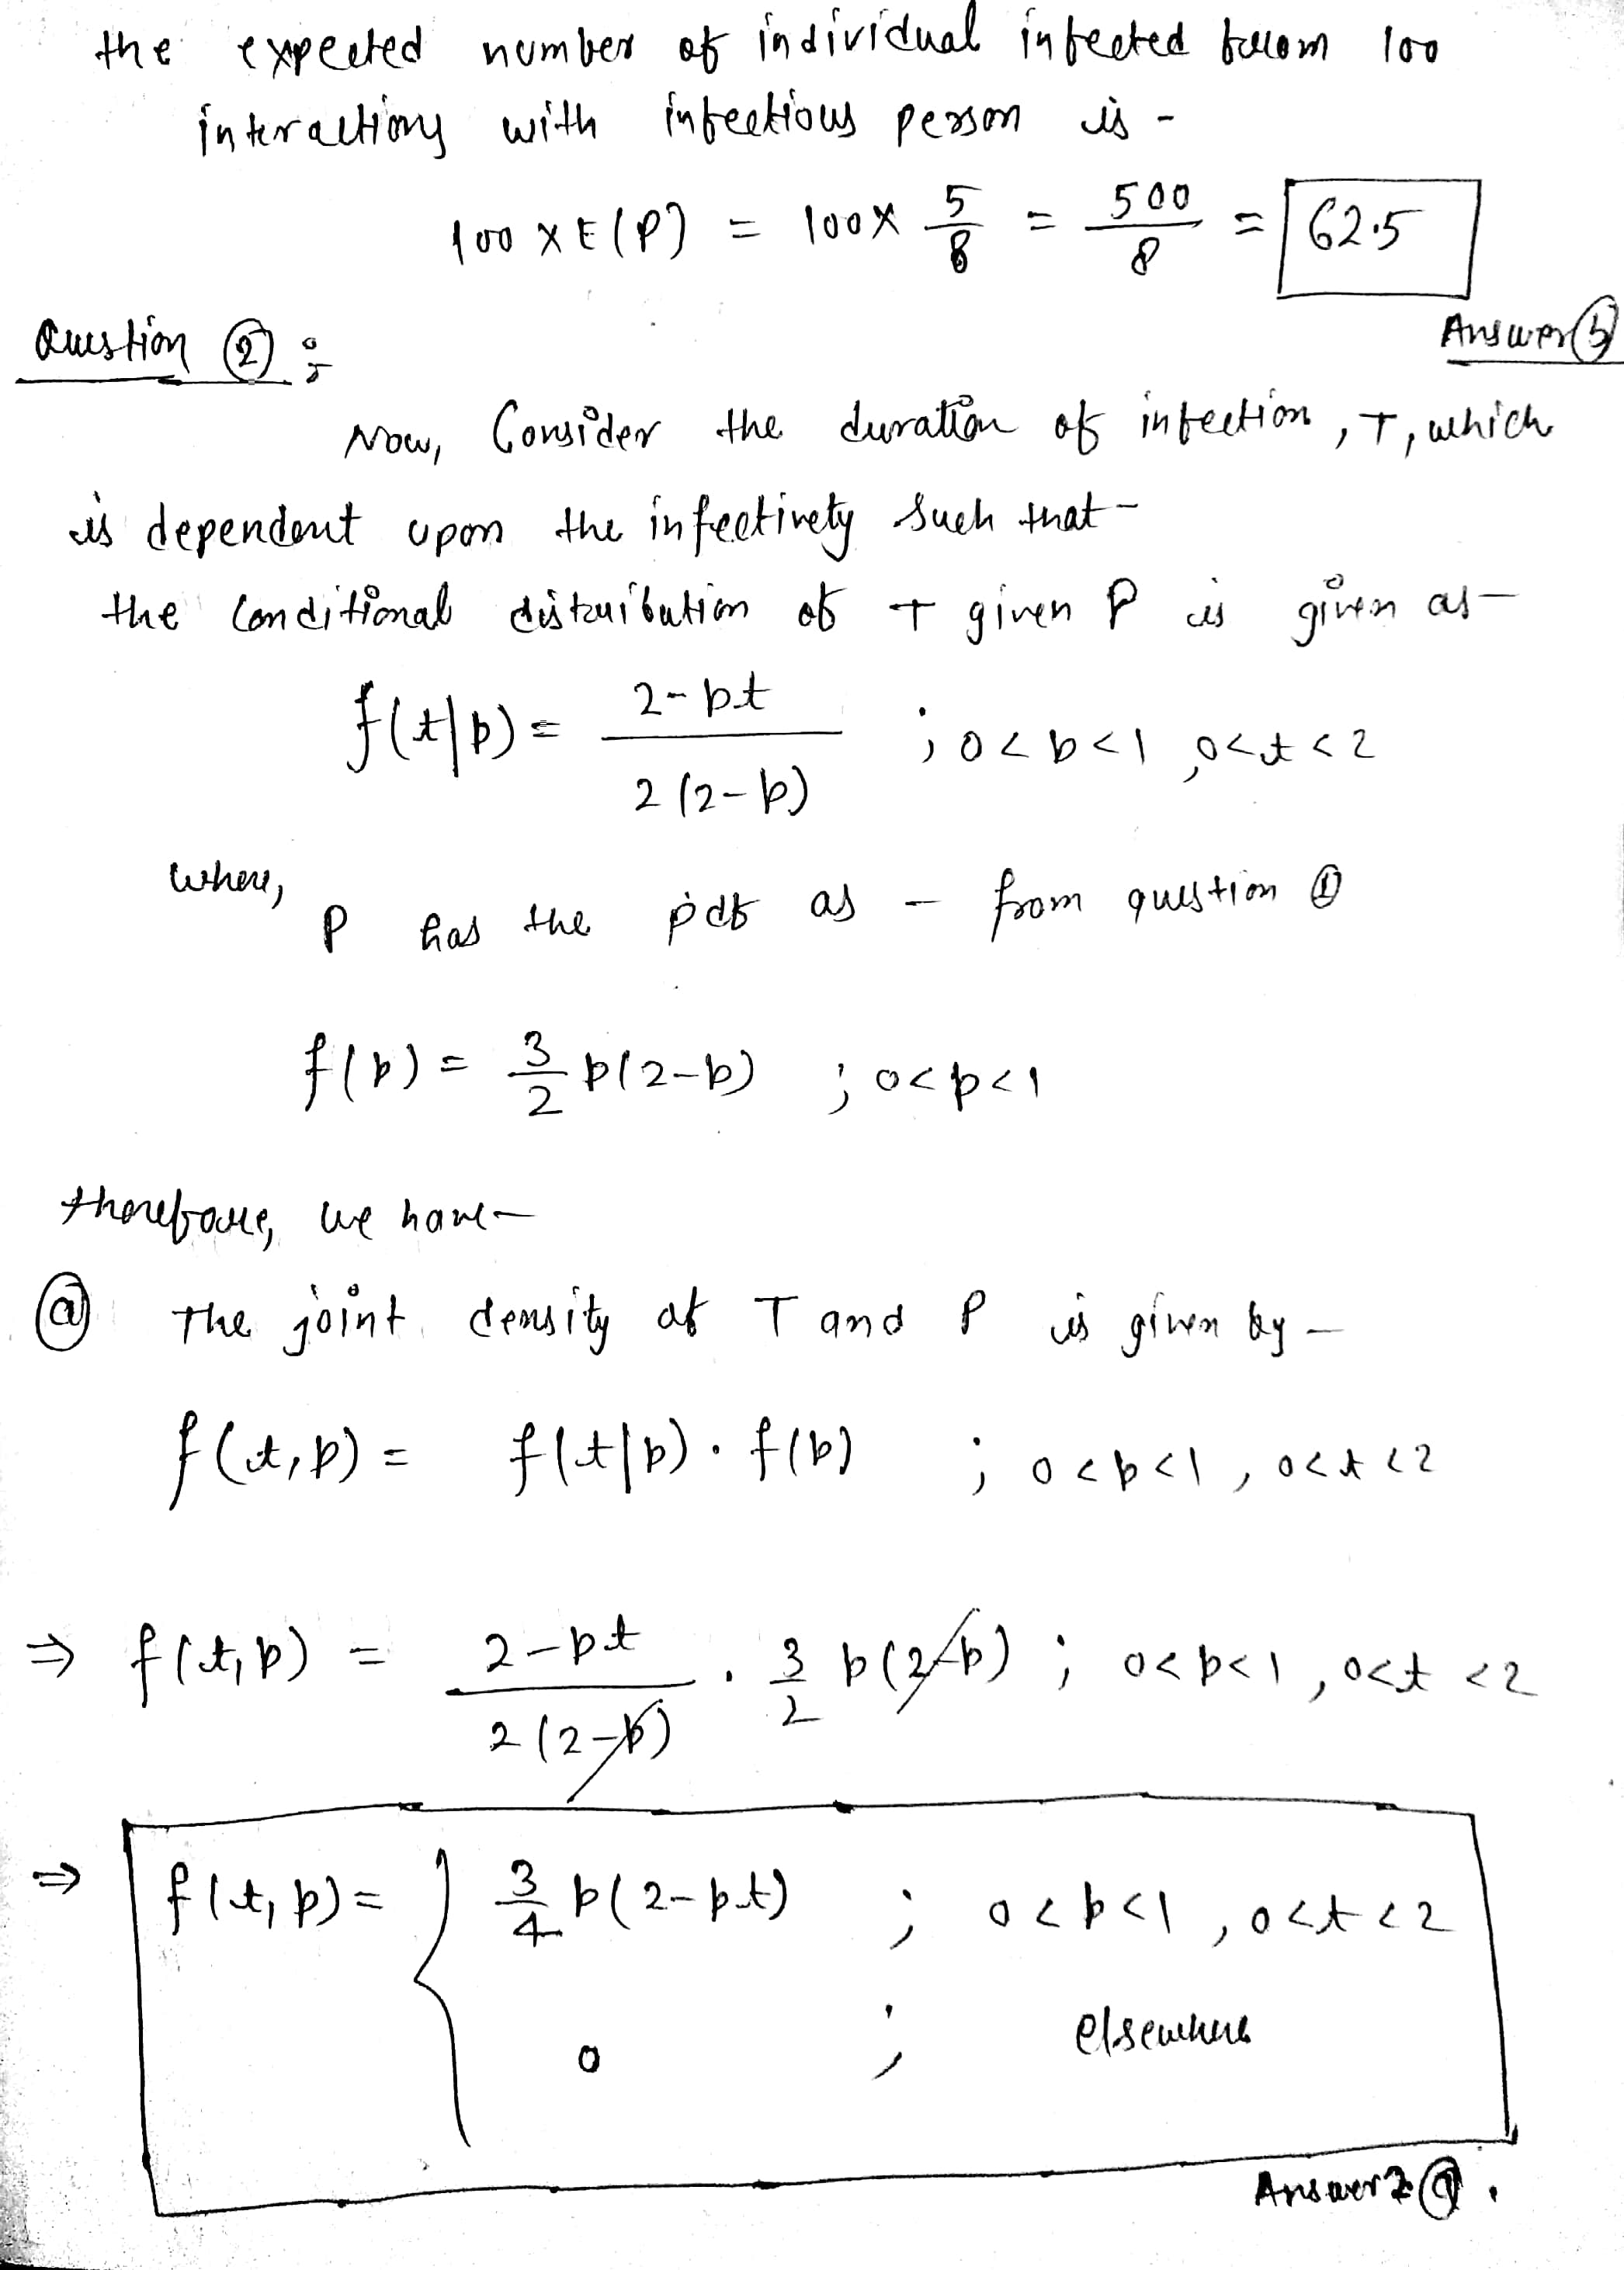 the expected number of individual infected from 100
interactions with infectious person is -
100 × E(P) = 100 × 5/8 = 500/8 = 62.5
Answer (b)
Question (2) :-
Now, Consider the duration of infection, T, which
is dependent upon the infectivety such that -
the conditional distribution of T given P is given as -
f(t|p) = (2-pt)/(2(2-p)) ; 0<p<1, 0<t<2
where,
P has the pdf as - from question (1)
f(p) = 3/2 p(2-p) ; 0<p<1
therefore, we have -
(a) The joint density of T and P is given by -
f(t,p) = f(t|p) · f(p) ; 0<p<1, 0<t<2
⇒ f(t,p) = (2-pt)/(2(2-p)) · 3/2 p(2-p) ; 0<p<1, 0<t<2
⇒ f(t,p) = { 3/4 p(2-pt) ; 0<p<1, 0<t<2
0 ; elsewhere
Answer 2 (a).